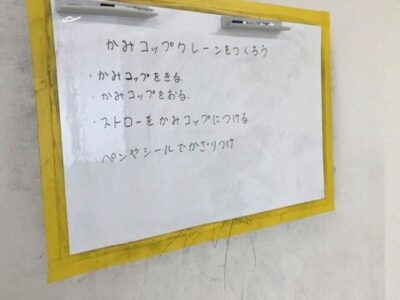 かみコップクレーンをつくろう
・かみコップをきる。
・かみコップをおる。
・ストローをかみコップにつける
・ペンやシールでかざりつけ